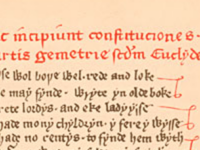 c incipiunt constituciones
artis gemetrie scdm Euclyde
se wol bope wel rede and loke
e may fynde wryte yn olde boke
rete lordys and eke ladyysse
hade mony chyldryn y fere y wysse
hade no rentys to fynde hem wyth